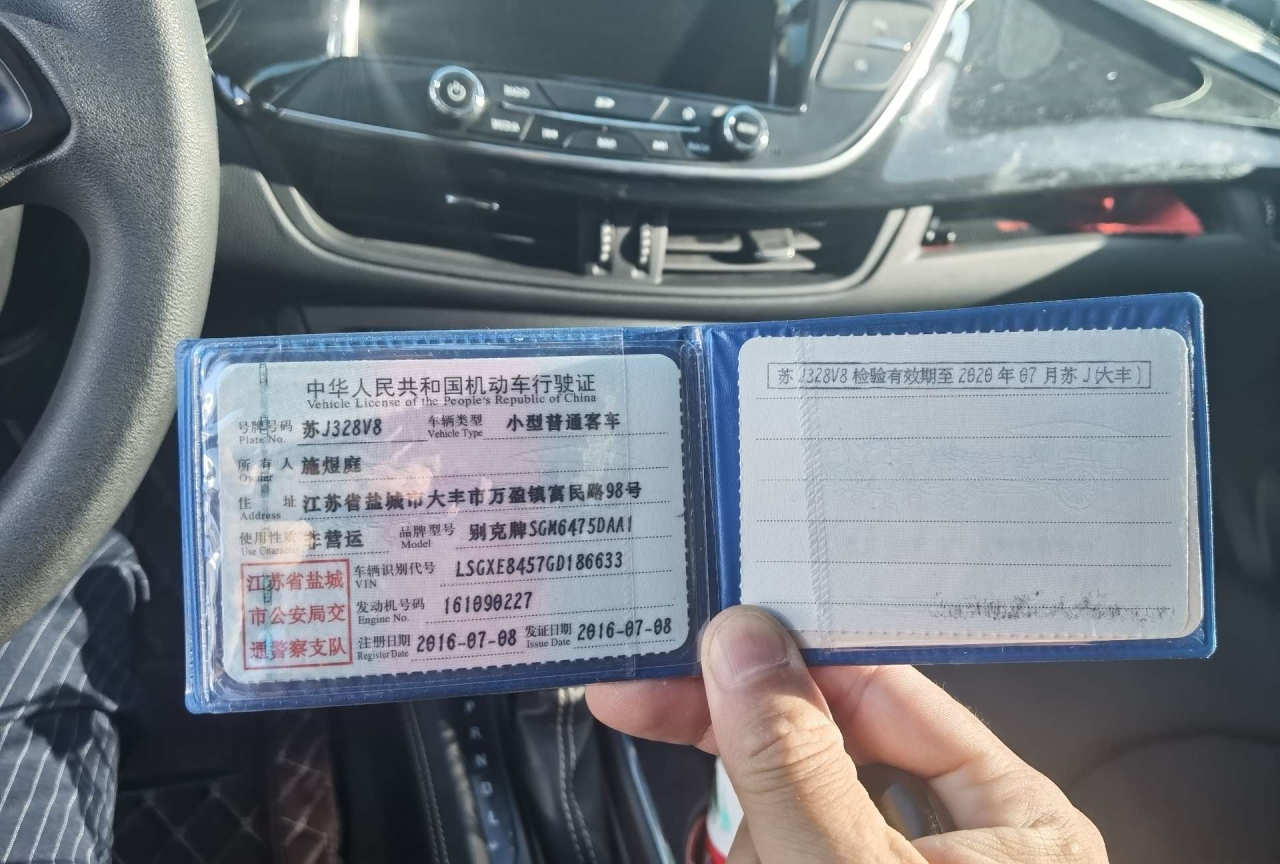 中华人民共和国机动车行驶证
Vehicle License of the People's Republic of China
号牌号码 苏J328V8 车辆类型 小型普通客车
Plate No. Vehicle Type
所有人 施煜庭
Owner
住址 江苏省盐城市大丰市万盈镇富民路98号
Address
使用性质 非营运 品牌型号 别克牌SGM6475DAA1
Use Character Model
车辆识别代号 LSGXE8457GD186633
VIN
发动机号码 161090227
Engine No.
注册日期 2016-07-08 发证日期 2016-07-08
Register Date Issue Date
江苏省盐城
市公安局交
通警察支队
苏J328V8检验有效期至2020年07月苏J(大丰)
P
R
N
D
L